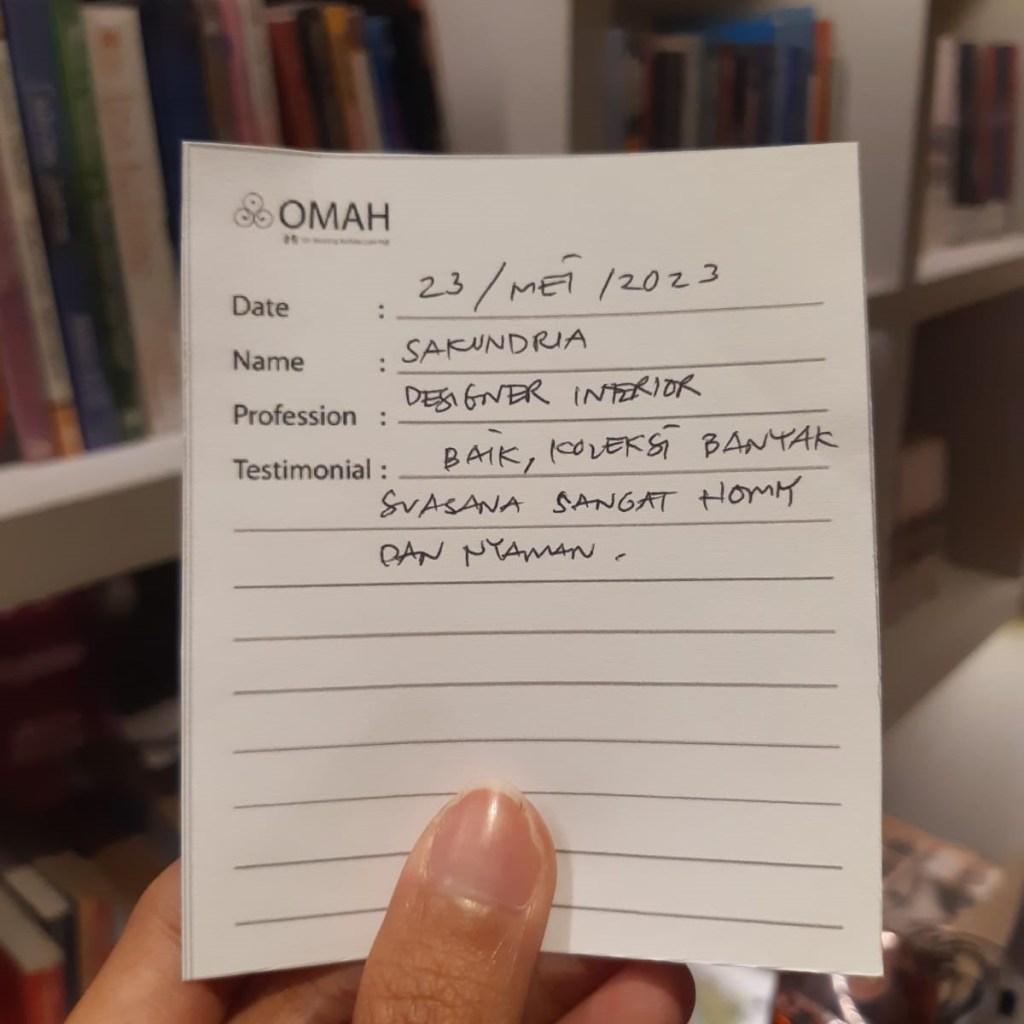 OMAH
Date : 23/MEI/2023
Name : SAKUNDRIA
Profession : DESIGNER INTERIOR
Testimonial : BAIK, KOLEKSI BANYAK
SUASANA SANGAT HOMY
DAN NYAMAN.